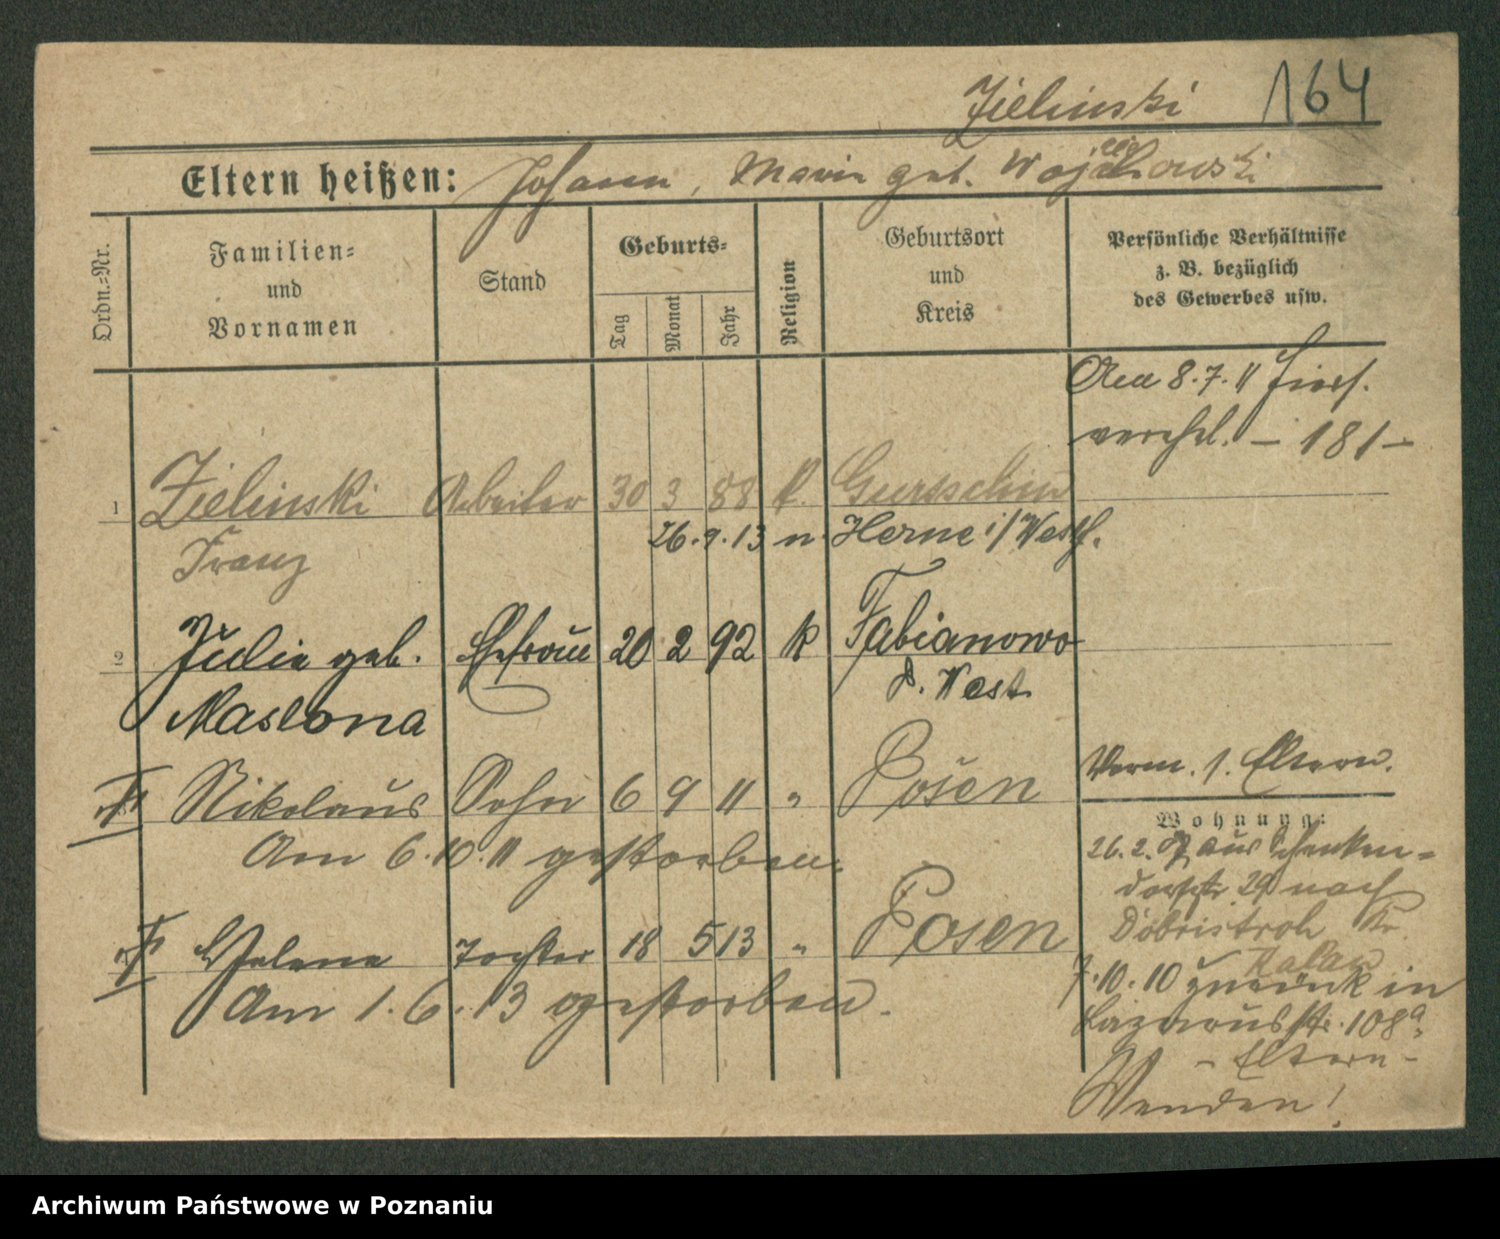 Zielinski 164
Eltern heißen: Johann, Maria geb. Wojciechowski
Ordn.-Nr.
Familien-
und
Vornamen
Stand
Geburts-
Tag
Monat
Jahr
Religion
Geburtsort
und
Kreis
Persönliche Verhältnisse
z. B. bezüglich
des Gewerbes usw.
Am 8.7.11 hier
verehel. – 181 –
1 Zielinski Arbeiter 30 3 88 k. Gurschin
26.9.13 n. Herne i/Westf.
Franz
2 Julie geb. Ehefrau 20 2 92 k Fabianowo
P. West
Maslona
Nikolaus Sohn 6 9 11 " Posen
Am 6.10.11 gestorben.
Helene Tochter 18 5 13 " Posen
Am 1.6.13 gestorben.
Verm. s. Eltern.
Wohnung:
26.2. aus Schenken-
dorfstr. 29 nach
Döbristroh Kr.
Kalau
7.10.10 zurück in
Lazarusstr. 108a
– Eltern –
Wenden!
Archiwum Państwowe w Poznaniu